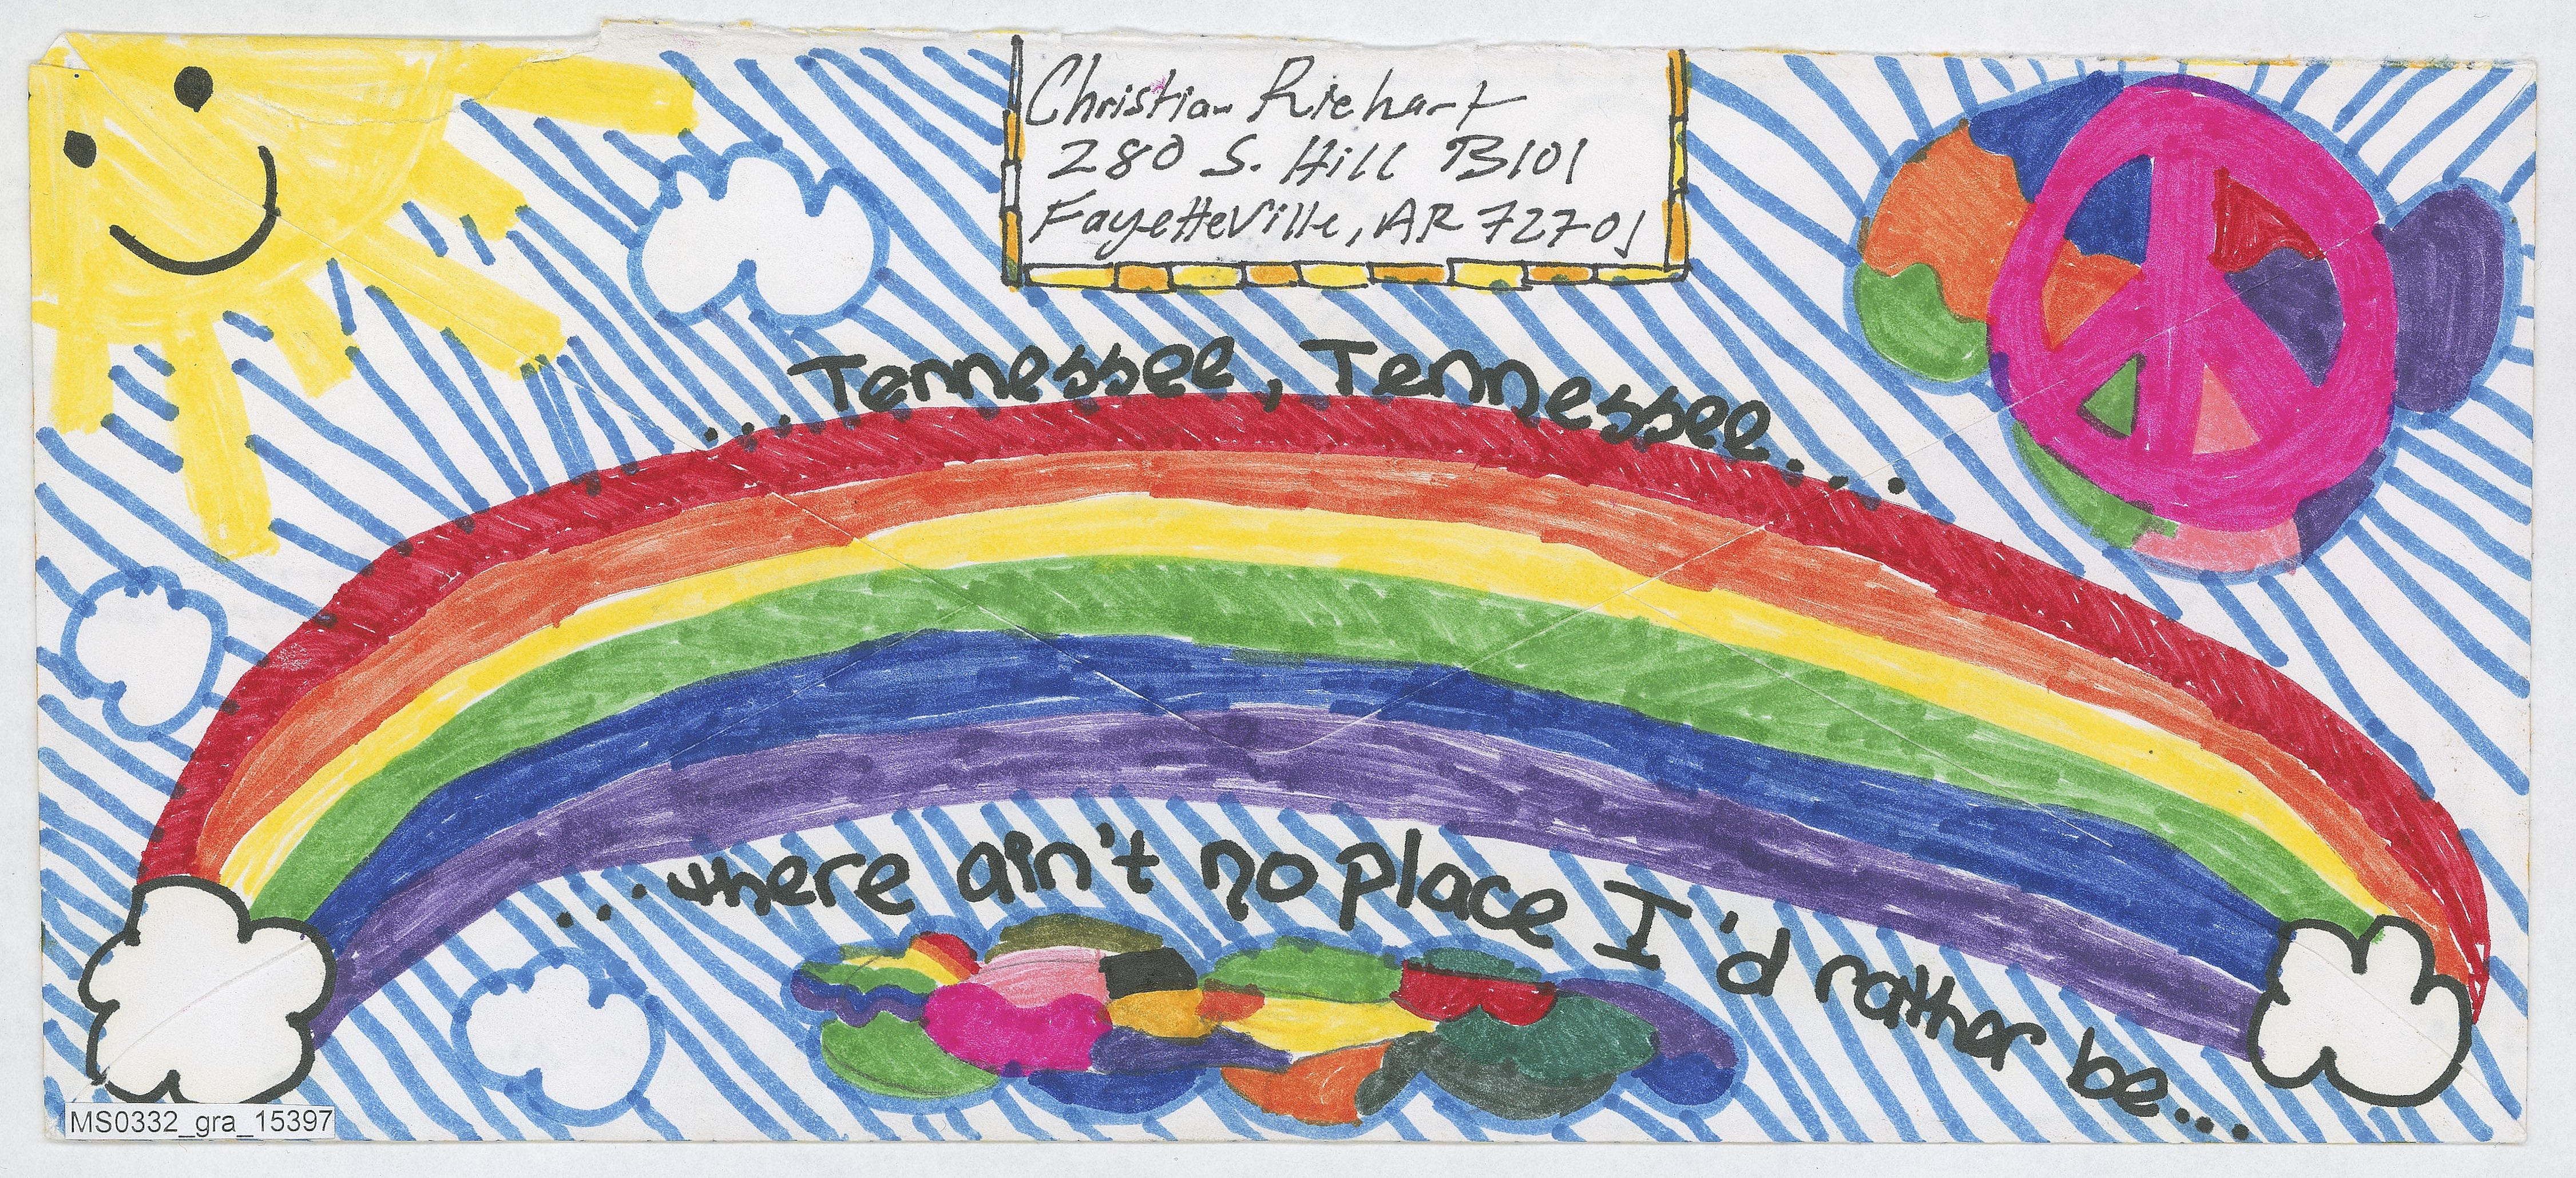 Christian Riehart
280 S. Hill B101
Fayetteville, AR 72701
...Tennessee, Tennessee...
...there ain't no place I'd rather be...
MS0332_gra_15397